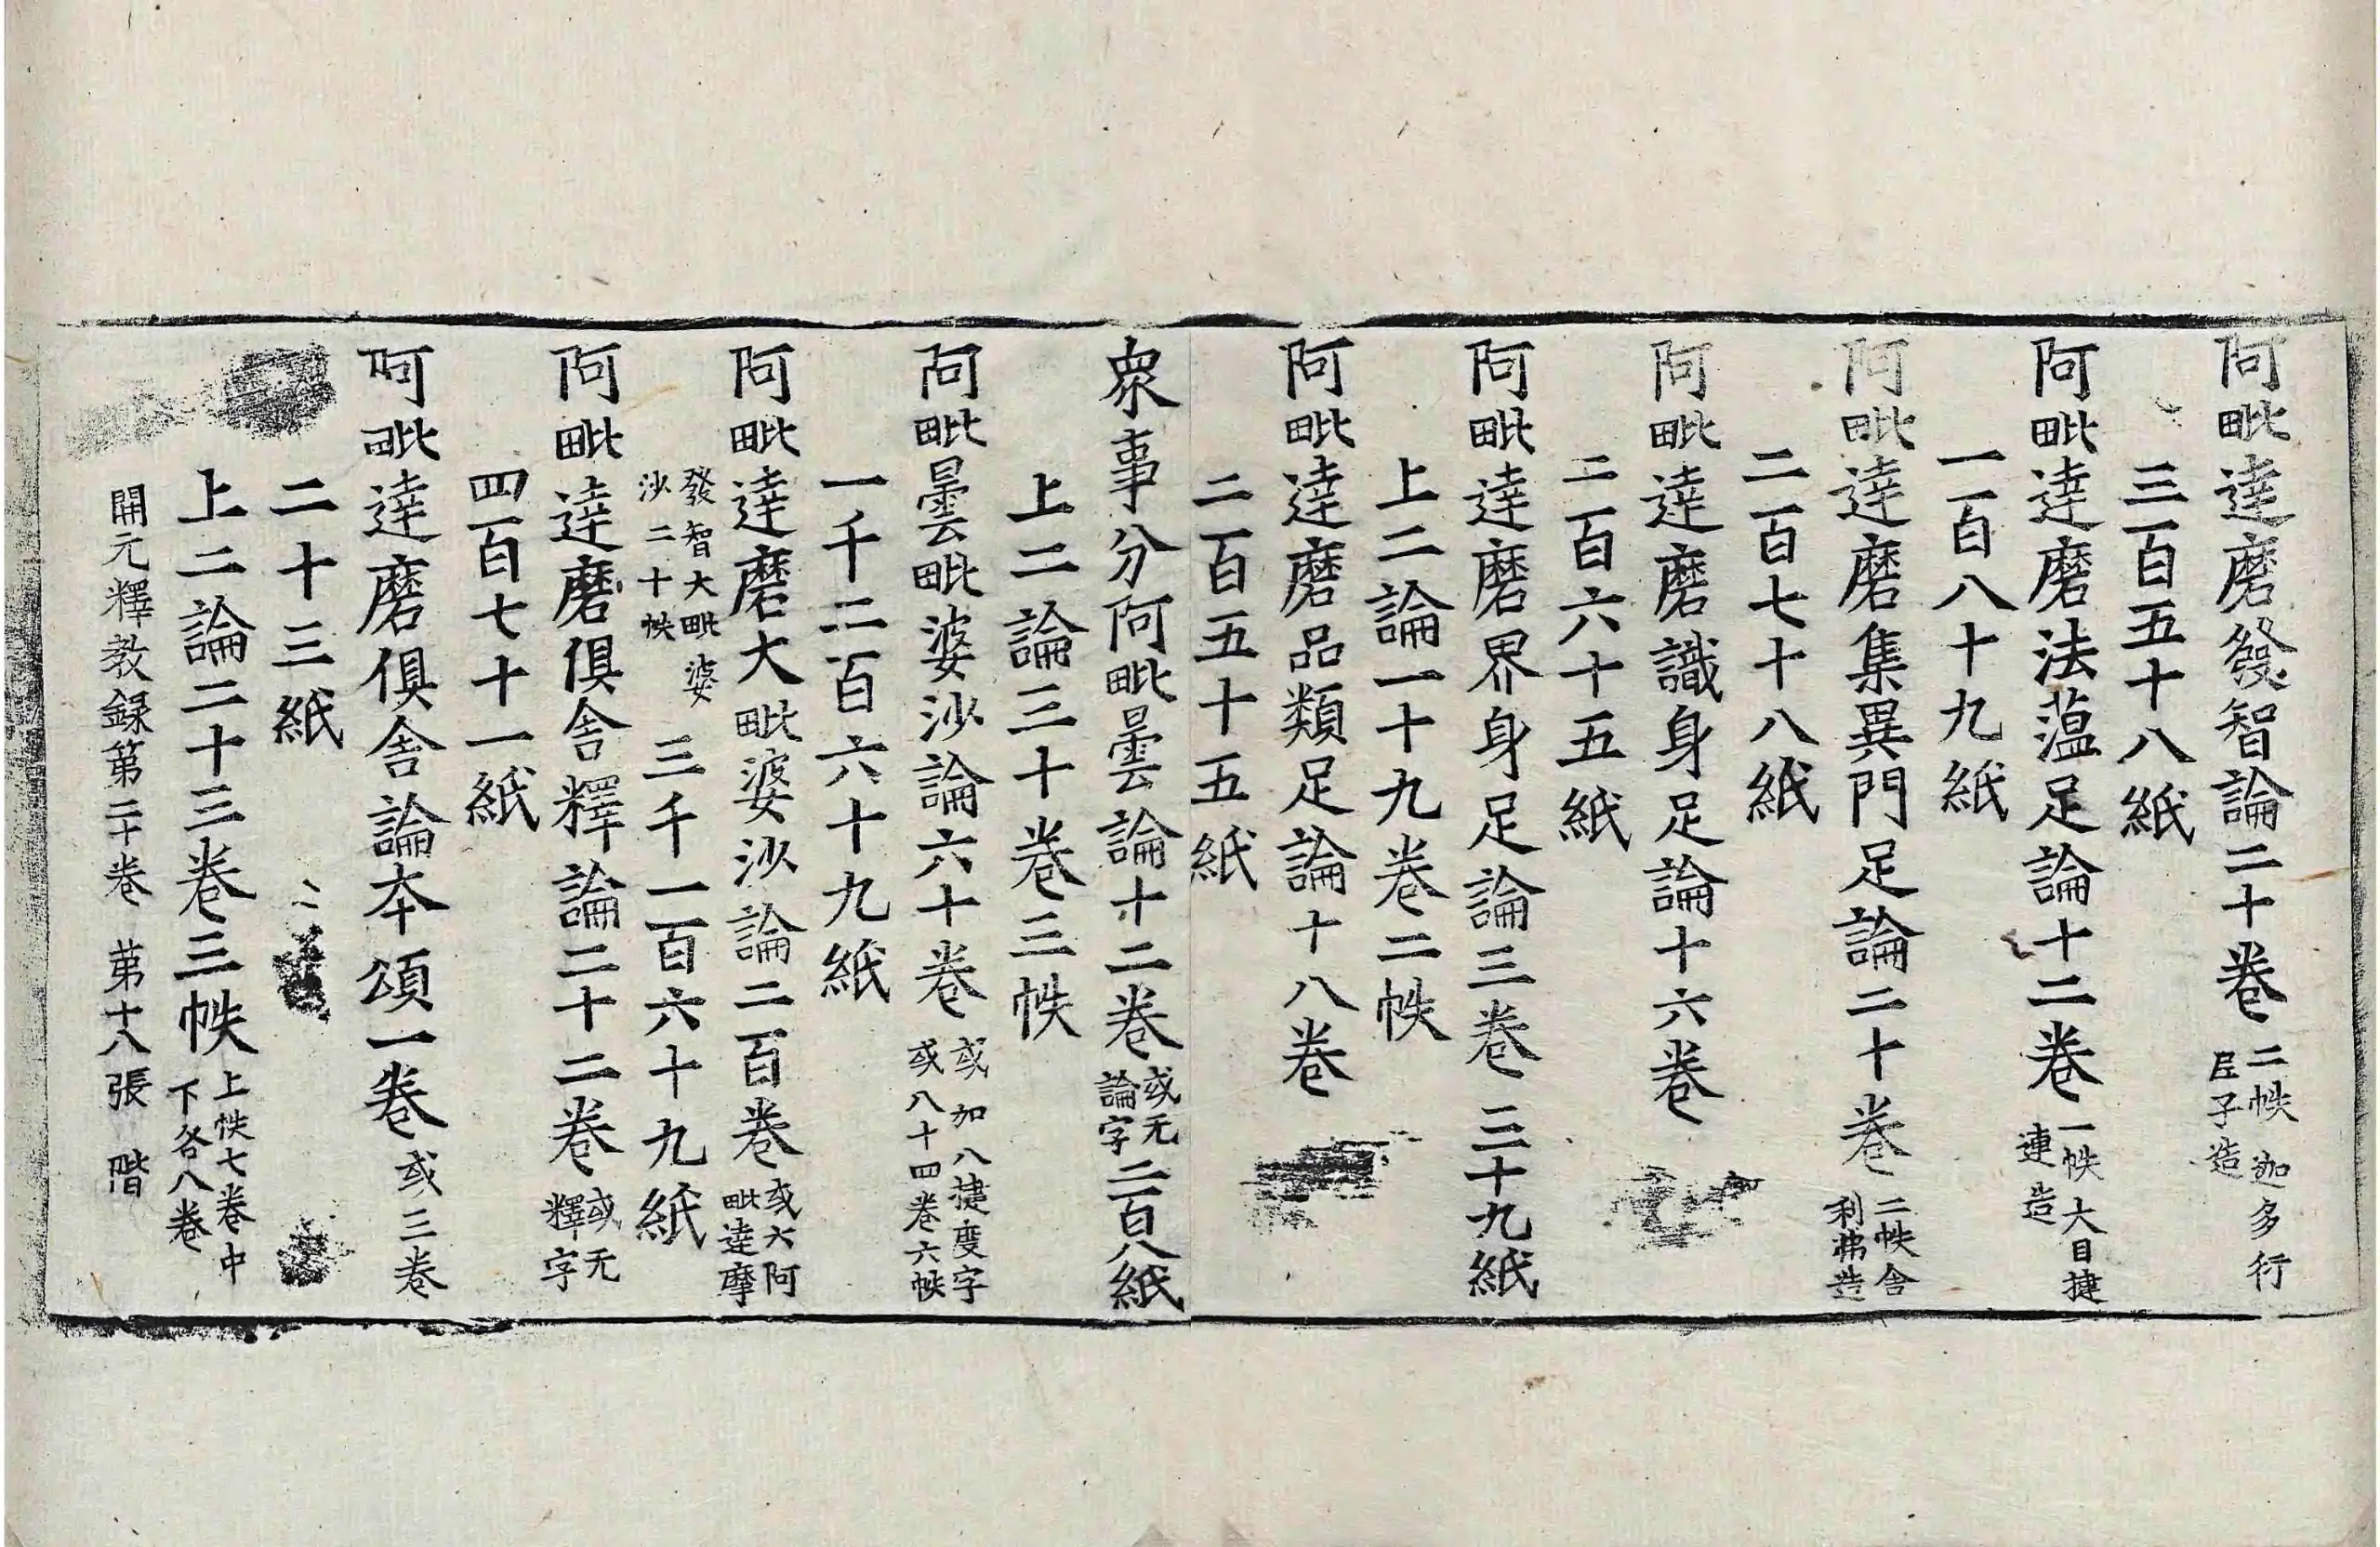 阿毗達磨發智論二十卷二帙迦多行
𡰱子造
三百五十八紙
阿毗達磨法蕰足論十二卷一帙大目揵
連造
一百八十九紙
阿毗達磨集異門足論二十卷二帙舍
利弗造
二百七十八紙
阿毗達磨識身足論十六卷
二百六十五紙
阿毗達磨界身足論三卷三十九紙
上二論一十九卷二帙
阿毗達磨品類足論十八卷
二百五十五紙
衆事分阿毗曇論十二卷或无
論字二百八紙
上二論三十卷三帙
阿毗曇毗婆沙論六十卷或加八揵度字
或八十四卷六帙
一千二百六十九紙
阿毗達磨大毗婆沙論二百卷或六阿
毗達摩
發智大毗婆
沙二十帙三千一百六十九紙
阿毗達磨俱舍釋論二十二卷或无
釋字
四百七十一紙
阿毗達磨俱舍論本頌一卷或三卷
二十三紙
上二論二十三卷三帙上帙七卷中
下各八卷
開元釋教録第二十卷 第十八張 階